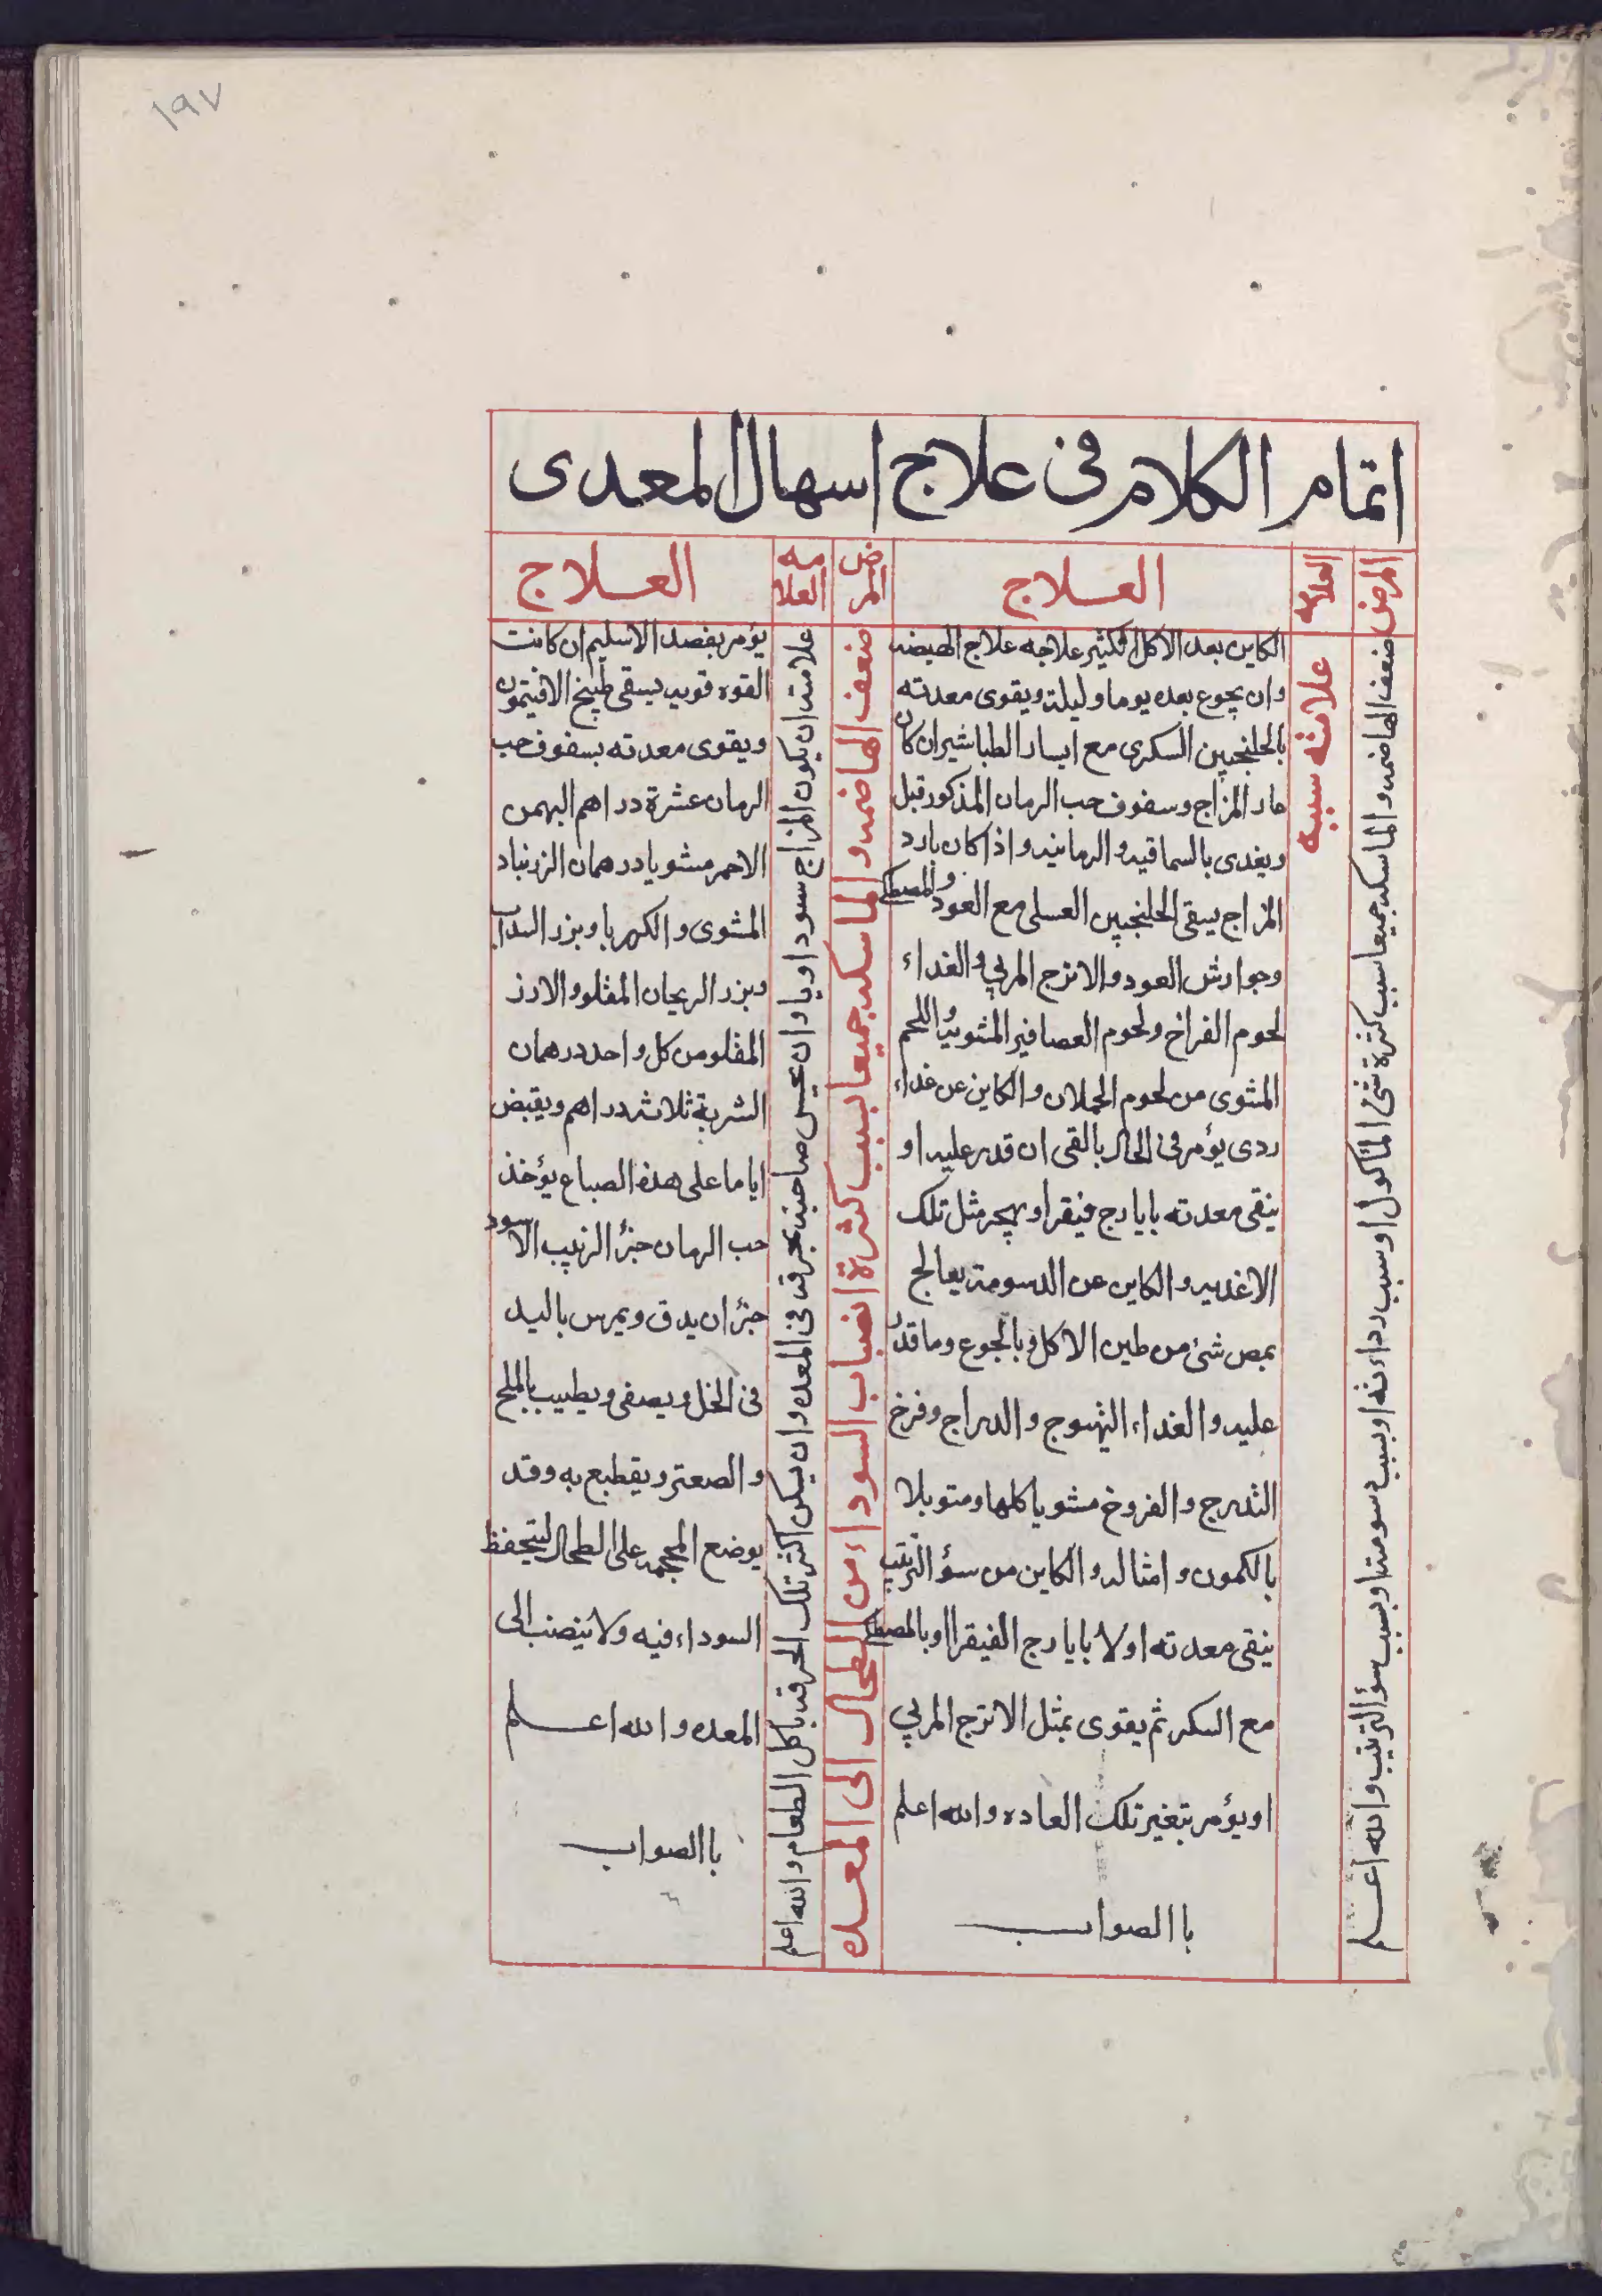 ١٩٧
اتمام الكلام فى علاج اسهال المعدى
المرض
العلامه
العلاج
المرض
العلامه
العلاج
ضعف الهاضمه والماسكه جميعا بسبب كثرة شئ الماكول او بسبب رداءته او بسبب دسومته او بسبب سؤ الترتيب والله اعلم
علامته سببه
الكاين بعد الاكل الكثير علاجه علاج الهيضه
وان يجوع بعده يوما وليلة ويقوى معدته
بالجلنجبين السكرى مع ايسار الطباشير ان كان
حار المزاج وسفوف حب الرمان المذكور قبل
ويغدى بالسماقيه والرمانيه واذا كان بارد
المزاج يسقى الجلنجبين العسلى مع العود والمصطكى
وجوارش العود والاترج المربي والغداء
لحوم الفراخ ولحوم العصافير المشويه واللحم
المشوى من لحوم الحملان والكاين عن غداء
ردى يؤمر فى الحال بالقى ان قدر عليه او
ينقى معدته بايارج فيقرا ويهجر مثل تلك
الاغديه والكاين عن الدسومة يعالج
بمص شئ من طين الاكل وبالجوع وما قدر
عليه والغداء اليهسوج والدراج وفرخ
التدرج والفروخ مشويا كلها ومتوبلا
بالكمون وامثاله والكاين من سؤ الترتيب
ينقى معدته اولا بايارج الفيقرا او بالمصطكى
مع السكر ثم يقوى بمثل الاترج المربي
او يؤمر بتغير تلك العاده والله اعلم
باالصواب
ضعف الهاضمه والماسكه جميعا بسبب كثرة انصباب السوداء من الطحال الى المعده
علامته ان يكون المزاج سوداويا وان يحس صاحبه بحرقه فى المعده وان يسكن اكثر تلك الحرقه باكل الطعام والله اعلم
يؤمر بفصد الاسليم ان كانت
القوه قويه يسقى طبيخ الافيتمون
ويقوى معدته بسفوف حب
الرمان عشرة دراهم البهمن
الاحمر مشويا درهمان الزرنباد
المشوى والكهربا وبزر السداب
وبزر الريحان المقلو والارز
المقلو من كل واحد درهمان
الشربة ثلاثه دراهم ويقبض
اياما على هذه الصباع يؤخذ
حب الرمان جزؤ الزبيب الاسود
جزؤان يدق ويمرس باليد
فى الخل ويصفى ويطيب بالملح
والصعتر ويقطبع به وقد
يوضع المحجمه على الطحال ليتحفظ
السوداء فيه ولا ينصب الى
المعده والله اعلم
باالصواب